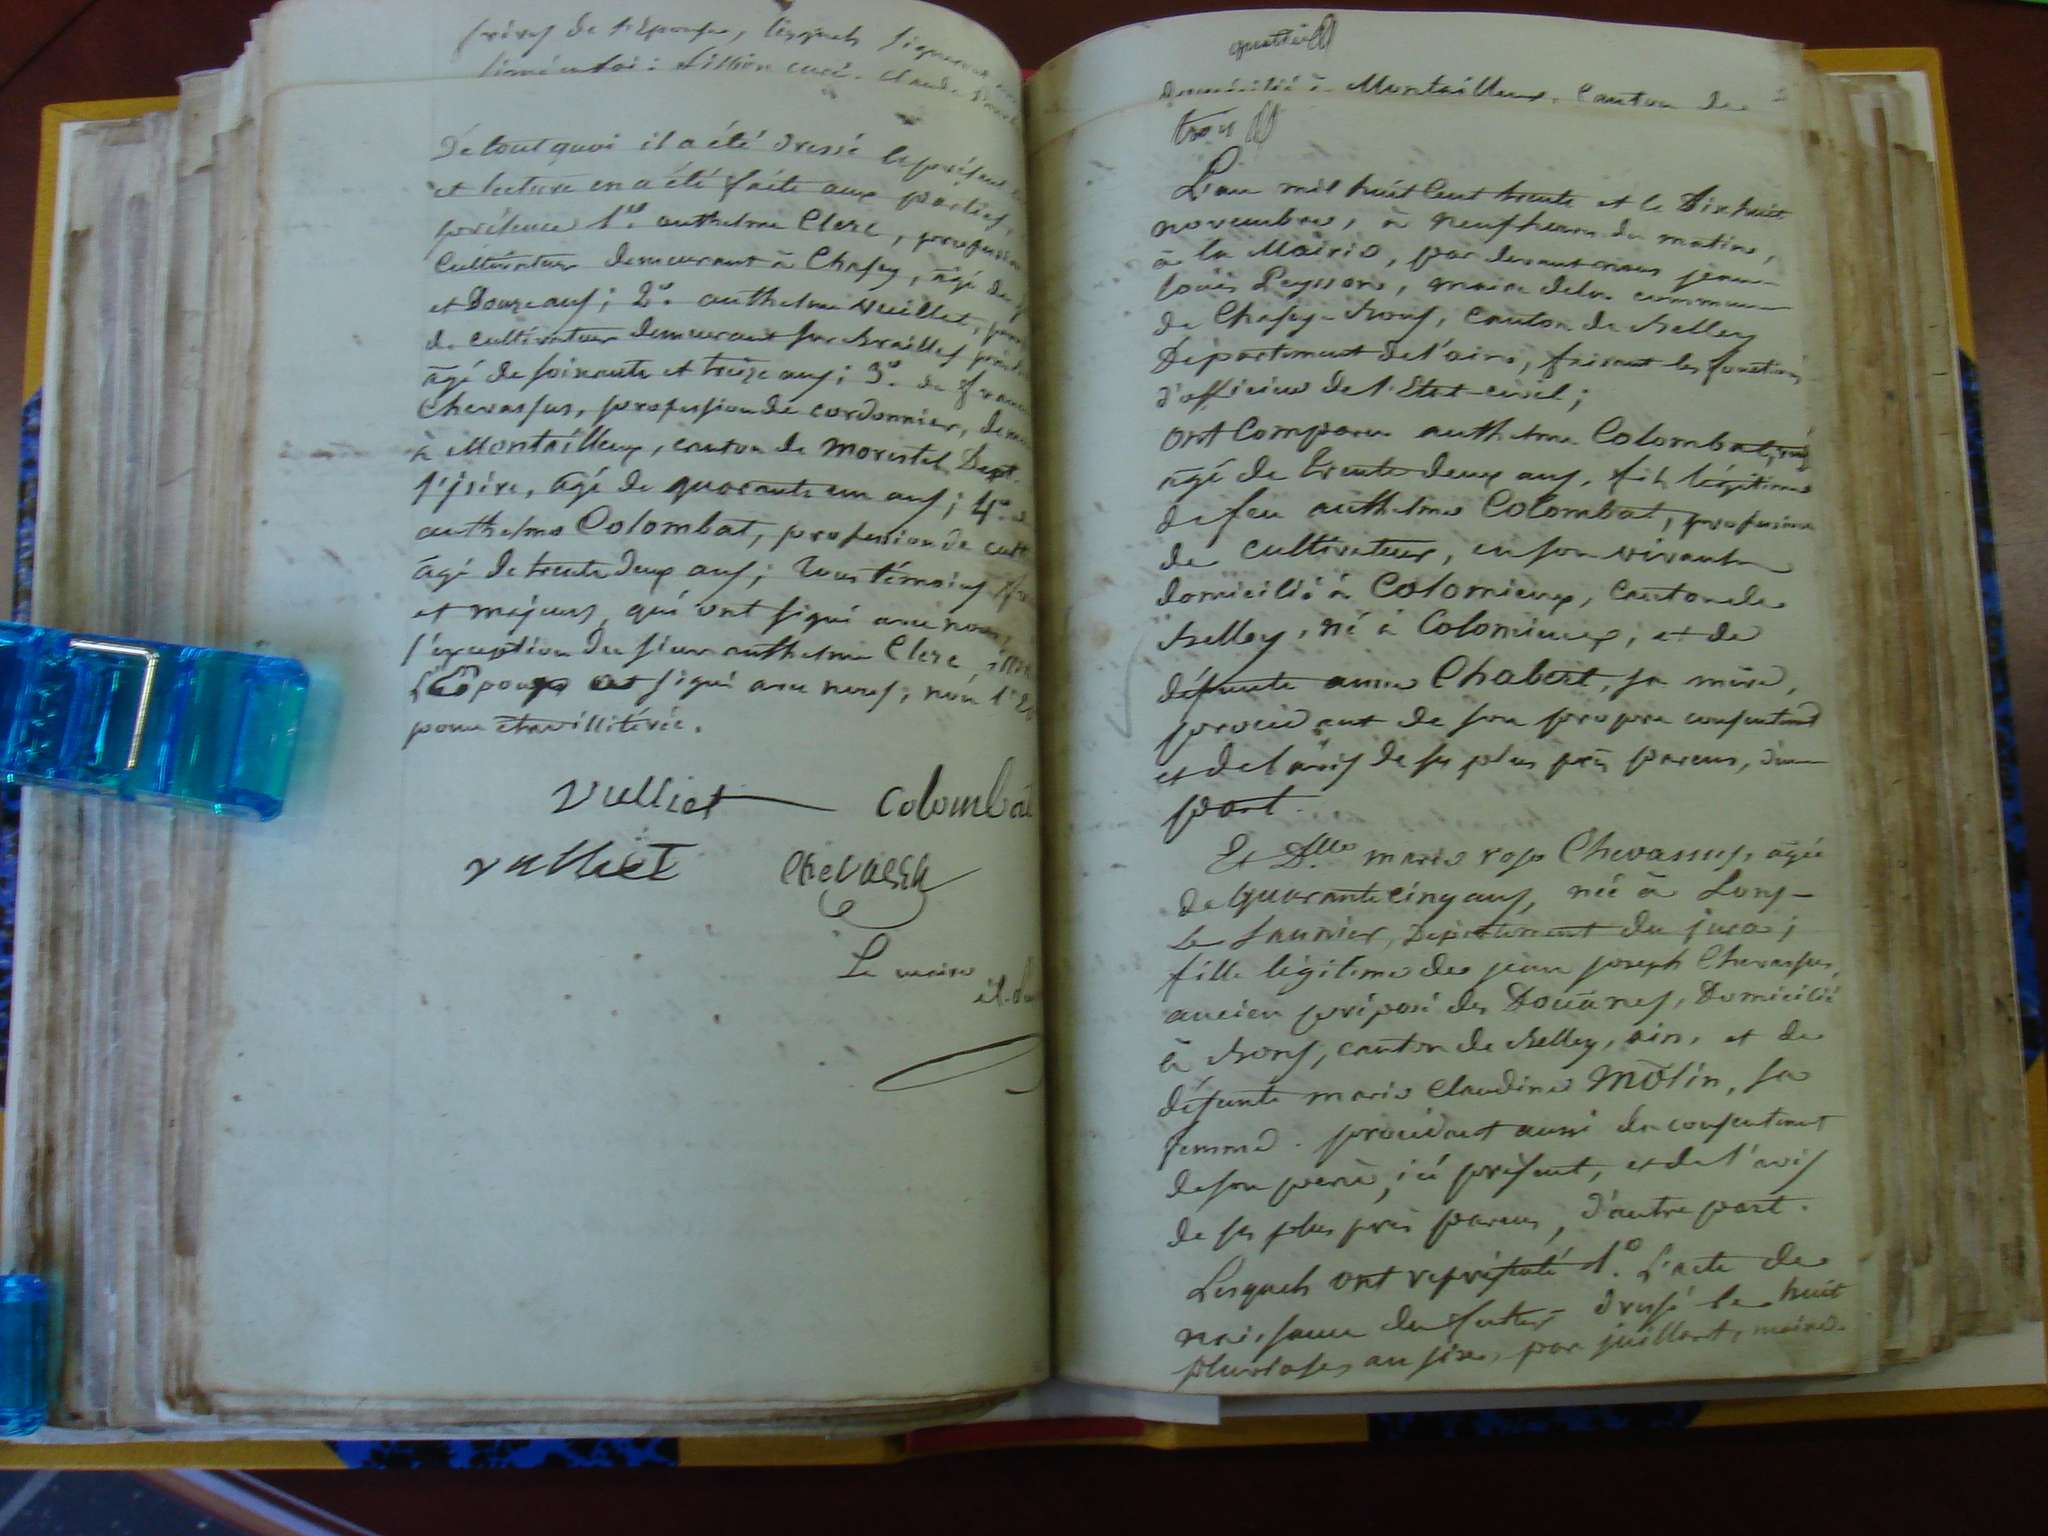 frères de l'Epouse, lesquels signeront
De tout quoi il a été dressé le présent
et lecture en a été faite aux parties,
présence 1º. anthelme Clerc, profession
Cultivateur demeurant à Chasey, âgé de
et Douze ans; 2º. anthelme Vuillet,
de cultivateur demeurant sur
âgé de soixante et treize ans; 3º. de
Chevassus, profession de cordonnier,
à Montailleux, canton de Morestel Dept.
l'isère, âgé de quarante un ans; 4º.
anthelme Colombat, profession de cult
âgé de trente deux ans; tous témoins
et majeurs, qui ont signé avec nous,
l'exception du sieur anthelme Clerc
L'Epoux a signé avec nous, non l'E
pour être illitérée.
Vulliet Colombat
Vulliet CHEVASSU
Le maire
domicilié à Montailleux, Canton de
trois
L'an mil huit Cent trente et le Dix huit
novembre, à neuf heures du matin,
à la Mairie, par devant nous jean
Louis Peysson, maire de la commune
de Chasey-Bons, Canton de Belley
Département de l'ain, faisant les fonctions
d'officier de l'Etat-civil;
ont Comparu anthelme Colombat,
âgé de trente deux ans, fils légitime
de feu anthelme Colombat, profession
de cultivateur, en son vivant
domicilié à Colomieux, Canton de
Belley, né à Colomieux, et de
défunte anne Chabert, sa mère,
procédant de son propre consentement
et de l'avis de ses plus près parens, d'une
part.
Et Dlle marie rose Chevassus, agée
de Quarante cinq ans, née à Lons-
le Saunier, Département du jura;
fille légitime de jean joseph Chevassus,
ancien préposé des Douanes, Domicilié
à Bons, canton de Belley, ain, et de
défunte marie Claudine Molin, sa
femme. procédant aussi du consentement
de son père, ici présent, et de l'avis
de ses plus près parens, d'autre part.
Lesquels ont représenté 1º. L'acte de
naissance du futur dressé le huit
pluviose an six, par juillart, maire